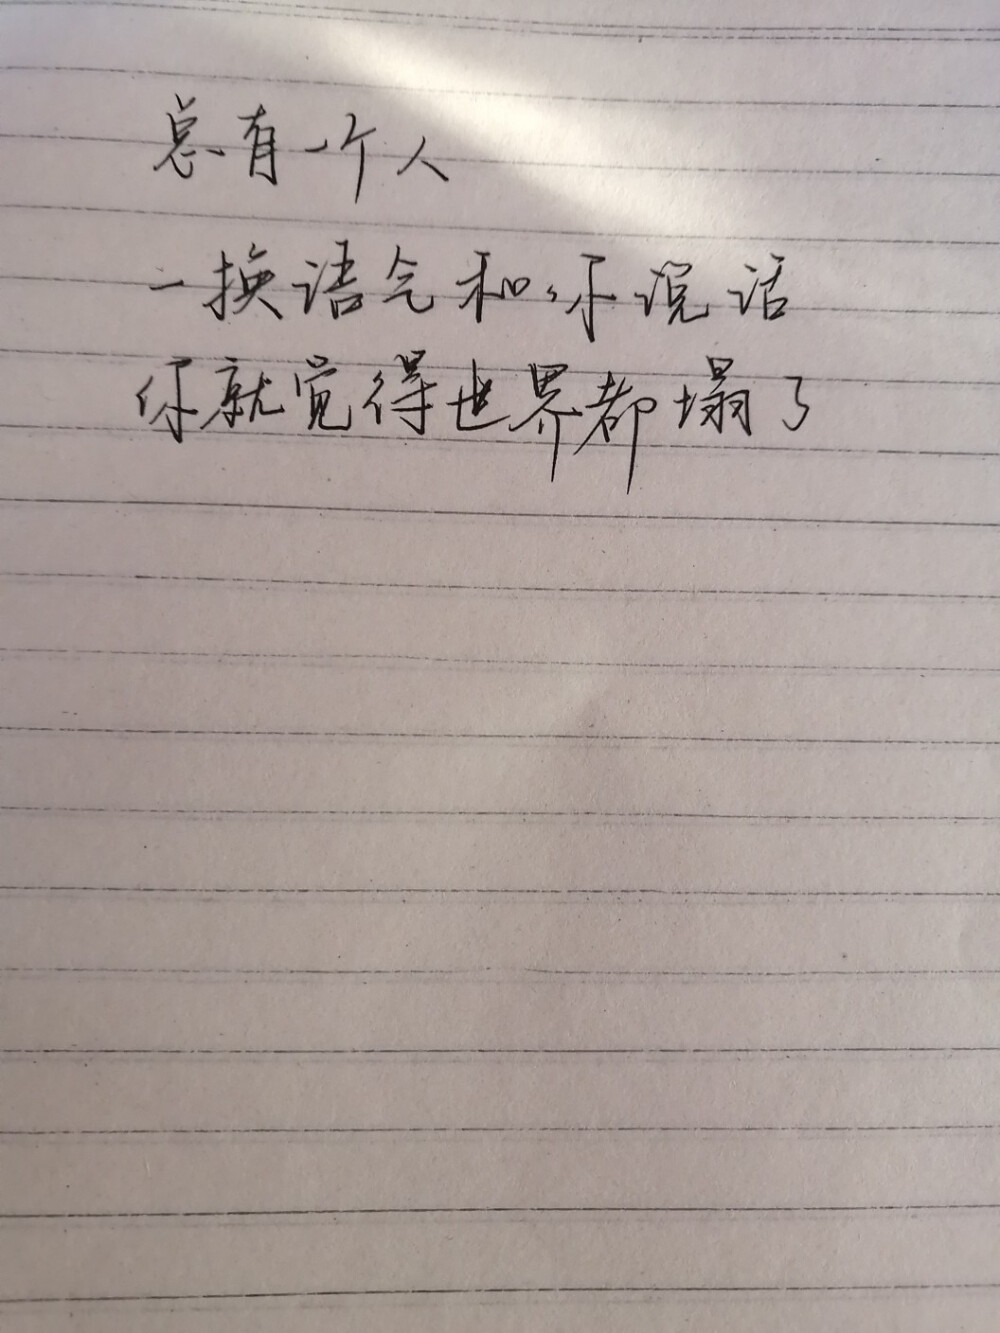 总有一个人
一换语气和你说话
你就觉得世界都塌了